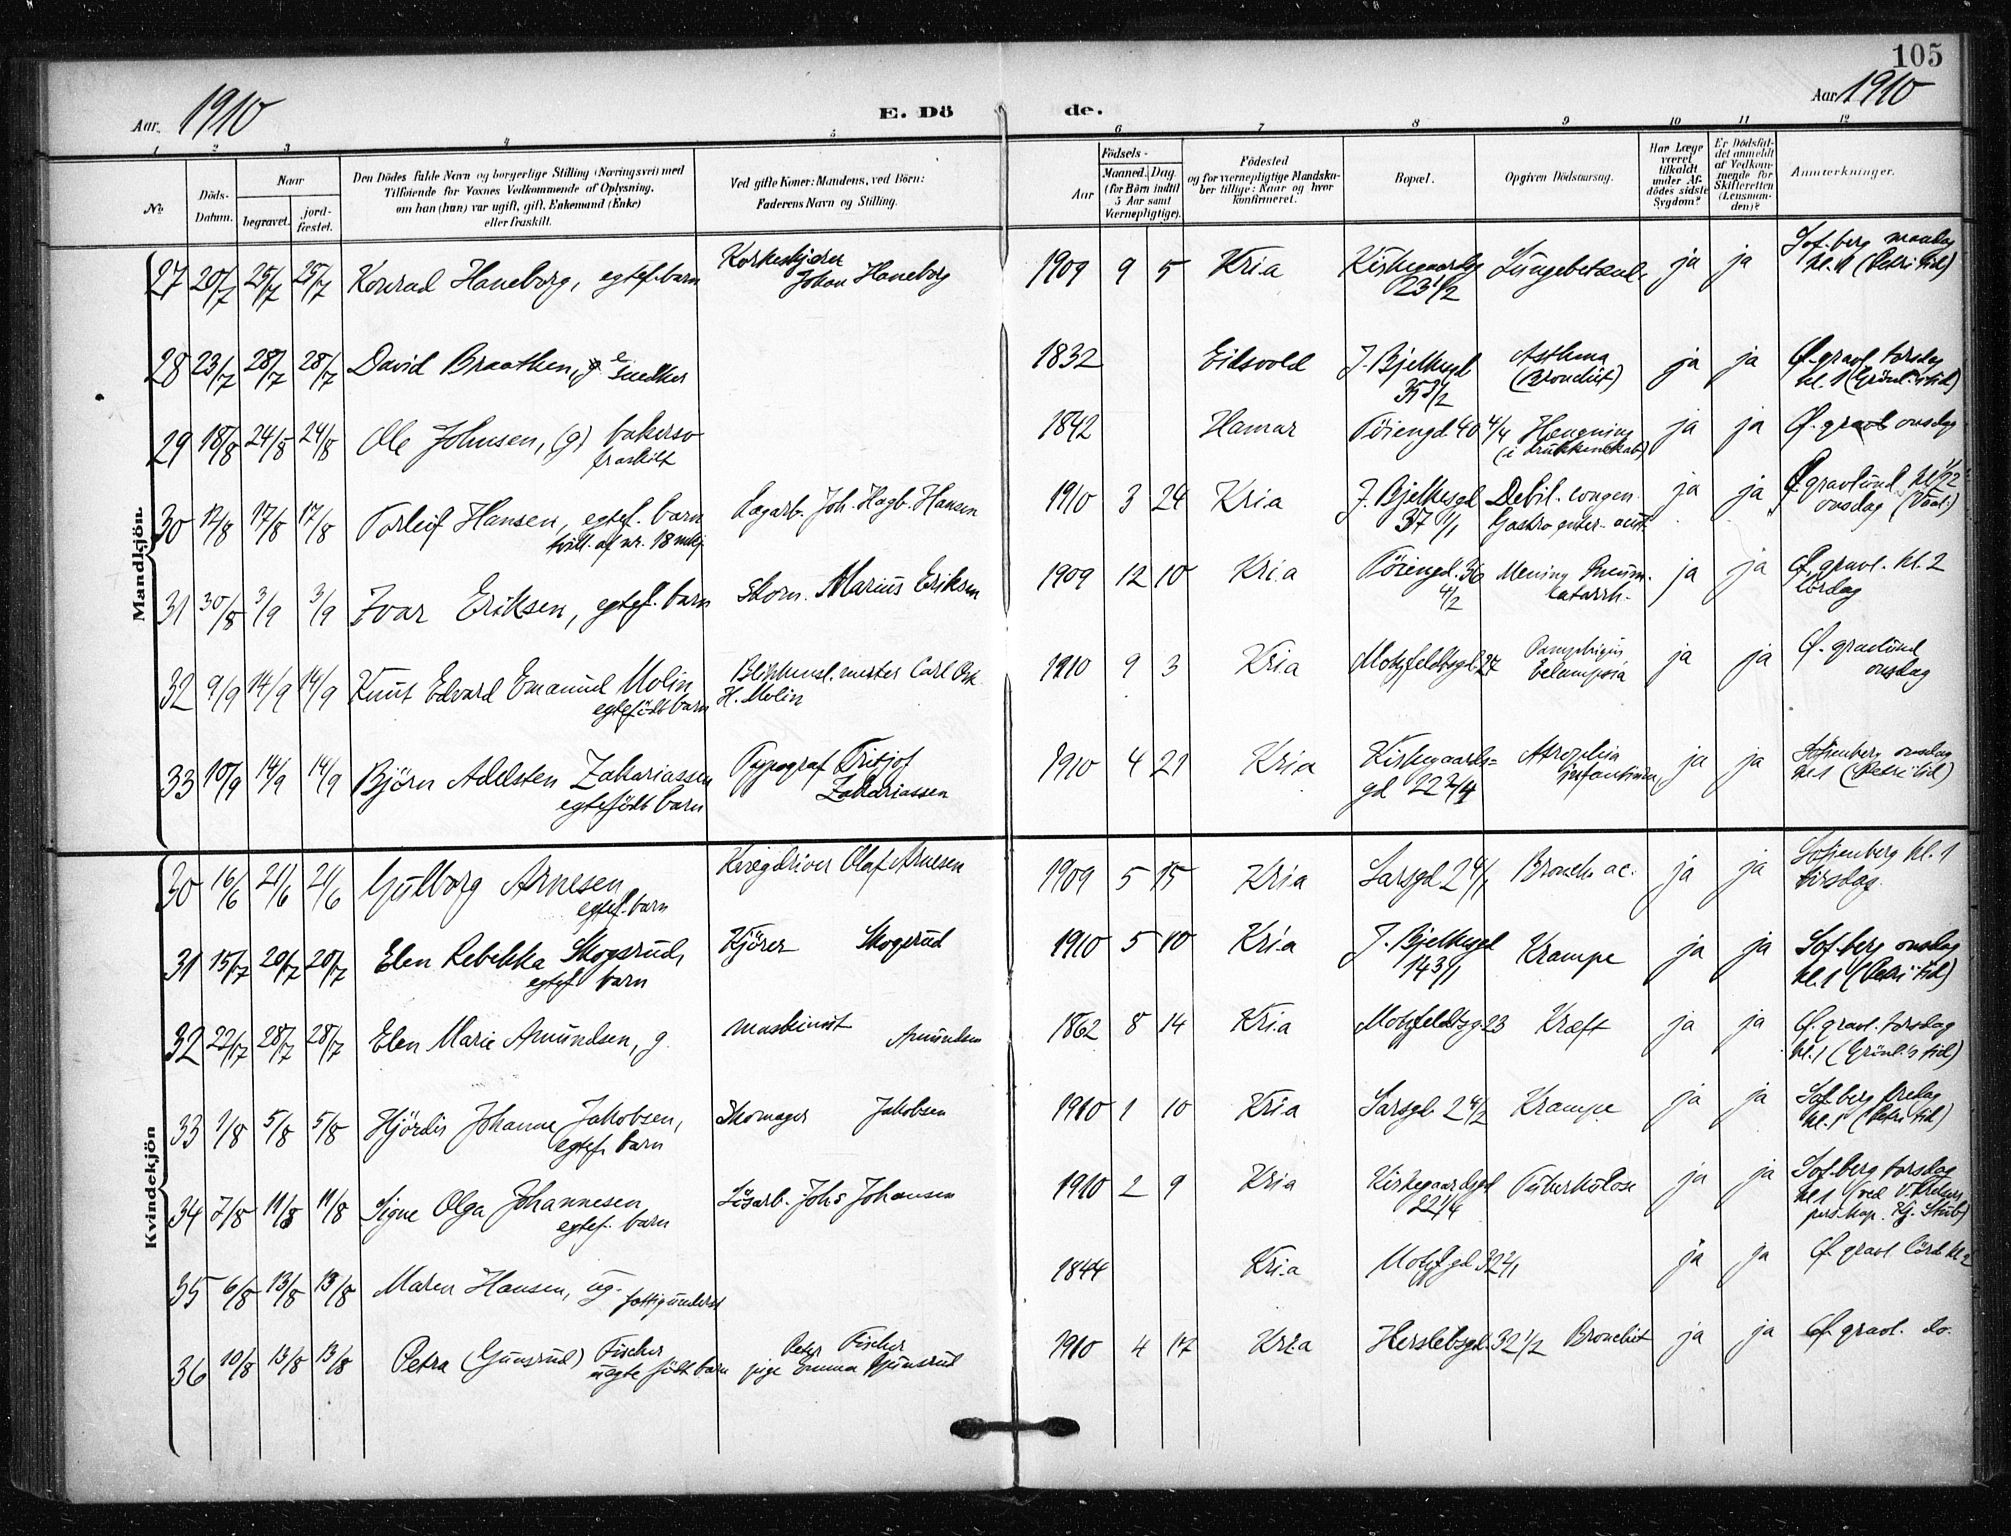 105
Aar. 1910 E. Dö de. Aar 1910
1 2 3 4 5 6 7 8 9 10 11 12
No. Döds-Datum. Naar begravet. jord-fæstet. Den Dödes fulde Navn og borgerlige Stilling (Næringsvei) med Tilföiende for Voxnes Vedkommende af Oplysning, om han (hun) var ugift, gift, Enkemand (Enke) eller fraskilt. Ved gifte Koner: Mandens, ved Börn: Faderens Navn og Stilling. Födsels- Aar Maaned. Dag. (for Börn indtil 5 Aar samt Værnepligtige). Födested og for værnepligtige Mandskaber tillige: Naar og hvor konfirmeret. Bopæl. Opgiven Dödsaarsag. Har Læge været tilkaldt under Afdödes sidste Sygdom? Er Dödsfaldet anmeldt af Vedkommende for Skifteretten (Lensmanden)? Anmærkninger.
Mandkjön.
27 20/7 25/7 25/7 Konrad Haneborg, egtef. barn Johan Haneborg 1909 9 5 Kria Kirkegaardsg 23 1/2 Lungebetænd. ja ja Sof.berg mandag kl. 1 (Petri tid)
28 23/7 28/7 28/7 David Braathen, e snedker 1832 Eidsvold J. Bjelkesgd 35 3/2 Asthma (Bronchit) ja ja Ø. gravl. torsdag kl. 1 (Grönl.s tid)
29 18/8 24/8 24/8 Ole Johnsen, (g) bakersv fraskilt 1842 Hamar Töiengd 40 4/4 Hængning (i drukkenskab) ja ja Ø. gravl onsdag
30 12/8 17/8 17/8 Torleif Hansen, egtef. barn tvill. af nr. 18 mkj. Lagarb. Joh. Hagb. Hansen 1910 3 24 Kria J. Bjelkesgd 37 1/1 Debil. congen. Gastro enter. acut. ja ja Ø gravlund kl 1/2 2 onsdag (Vaal.)
31 30/8 3/9 3/9 Ivar Eriksen, egtef. barn Skom. Marius Eriksen 1909 12 10 Kria Töiengd. 36 4/2 Mening Pneum. catarrh. ja ja Ø gravl. kl. 2 lördag
32 9/9 14/9 14/9 Knut Edvard Emanuel Molin egtefödt barn Blikkensl. mester Carl Osk. H. Molin 1910 9 3 Kria Motzfeldtsgd 27 Pemphigus Eclampsia ja ja Ø. gravlund onsdag
33 10/9 14/9 14/9 Björn Adelsten Zakariassen egtefödt barn Typograf Fritjof Zakariassen 1910 4 21 Kria Kirkegaards=gd 22 3/4 Atrophia infantium ja ja Sofienberg onsdag kl 1 (Petri tid)
Kvindekjön
30 16/6 21/6 21/6 Gulborg Arnesen egtef. barn Olaf Arnesen 1909 5 15 Kria Sarsgd 2 4/1 Bronch. ac. ja ja Sofienberg kl. 1 tirsdag.
31 15/7 20/7 20/7 Elen Rebekka Skogsrud, egtef. barn Kjörer Skogsrud 1910 5 10 Kria J. Bjelkesgd 14 3/1 Krampe ja ja Sof.berg onsdag kl. 1 (Petri tid)
32 22/7 28/7 28/7 Elen Marie Amundsen, g. maskinist Amundsen 1862 8 14 Kria Motzfeldtsg. 23 Kræft ja ja Ø. gravl. torsdag kl. 1 (Grönl.s tid)
33 1/8 5/8 5/8 Hjördis Johanne Jakobsen, egtef. barn Skomager Jakobsen 1910 1 10 Kria Sarsgd 2 4/2 Krampe ja ja Sof berg fredag kl. 1 (Petri tid)
34 7/8 11/8 11/8 Signe Olga Johannesen egtef. barn Lösarb. Johs Johansen 1910 2 9 Kria Kirkegaardsgd 22 1/4 Tuberkulose ja ja Sof.berg torsdag kl 1 (ved pers. kap. Kj. Stub)
35 6/8 13/8 13/8 Maren Hansen, ug. fattigunderst 1844 Kria Motzf gd 32 4/1 ja ja Ø gravl lörd kl 2
36 10/8 13/8 13/8 Petra (Gunsrud) Fischer uegte födt barn Peter Fischer pige Emma Gunsrud 1910 4 17 Kria Herslebsgd. 32 1/2 Bronchit ja ja Ø. gravl. do.